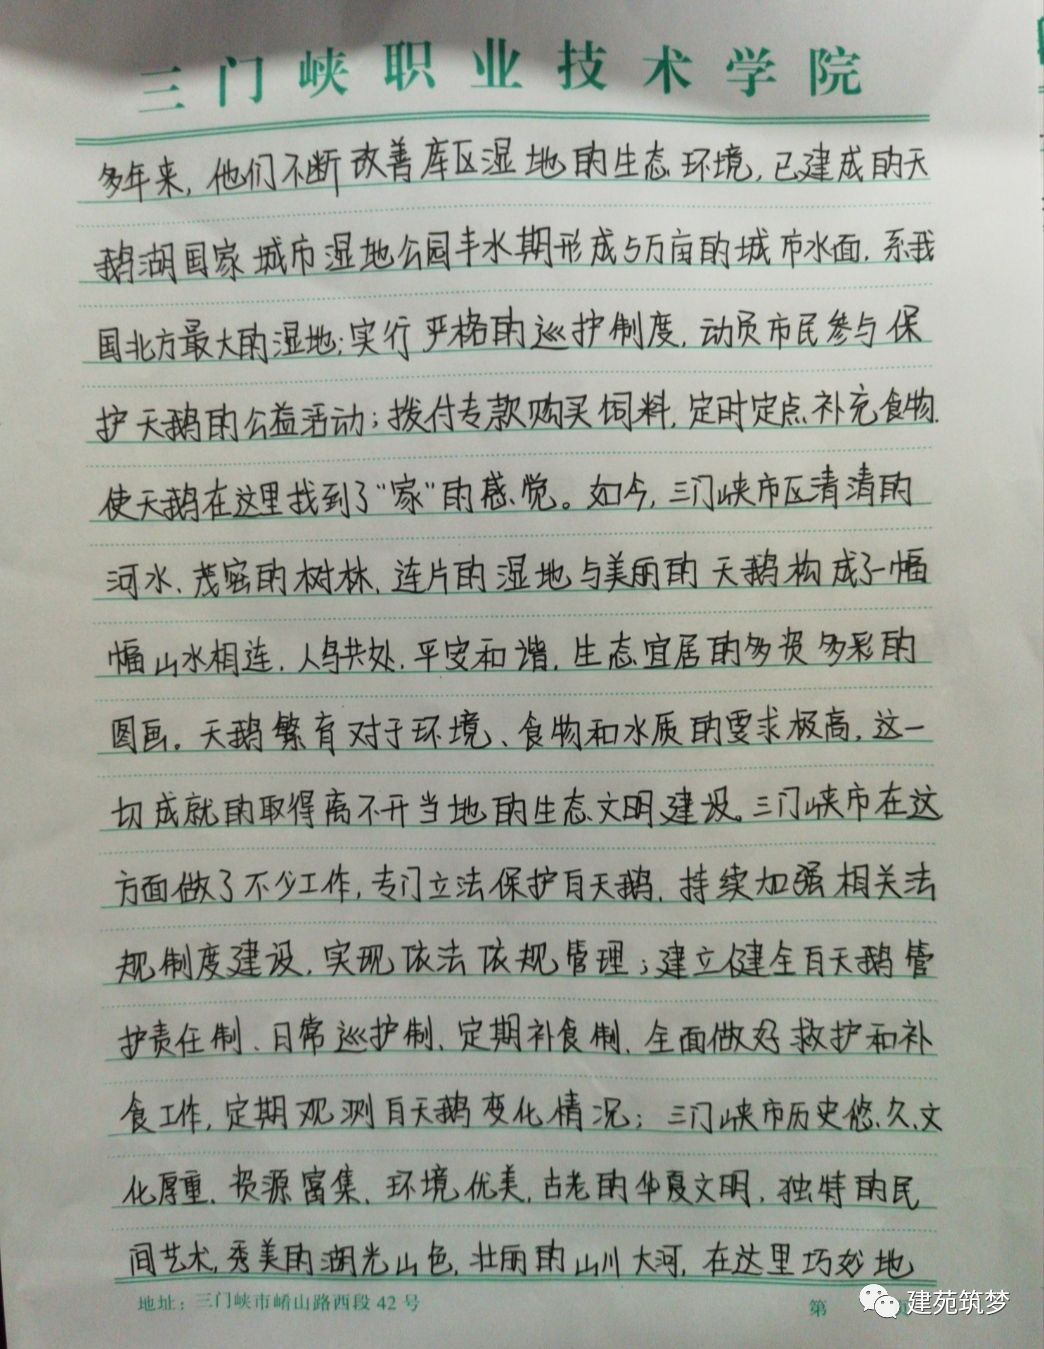 三门峡职业技术学院
多年来，他们不断改善库区湿地的生态环境，已建成的天
鹅湖国家城市湿地公园丰水期形成5万亩的城市水面，系我
国北方最大的湿地；实行严格的巡护制度，动员市民参与保
护天鹅的公益活动；拨付专款购买饲料，定时定点补充食物，
使天鹅在这里找到了“家”的感觉。如今，三门峡市区清清的
河水、茂密的树林，连片的湿地与美丽的天鹅构成了一幅
幅山水相连，人鸟共处，平安和谐，生态宜居的多姿多彩的
图画。天鹅繁育对于环境、食物和水质的要求极高，这一
切成就的取得离不开当地的生态文明建设。三门峡市在这
方面做了不少工作，专门立法保护白天鹅，持续加强相关法
规制度建设，实现依法依规管理；建立健全白天鹅管
护责任制、日常巡护制、定期补食制，全面做好救护和补
食工作，定期观测白天鹅变化情况；三门峡市历史悠久，文
化厚重，资源富集，环境优美，古老的华夏文明，独特的民
间艺术，秀美的湖光山色，壮丽的山川大河，在这里巧妙地
地址：三门峡市崤山路西段42号
第 页
建苑筑梦